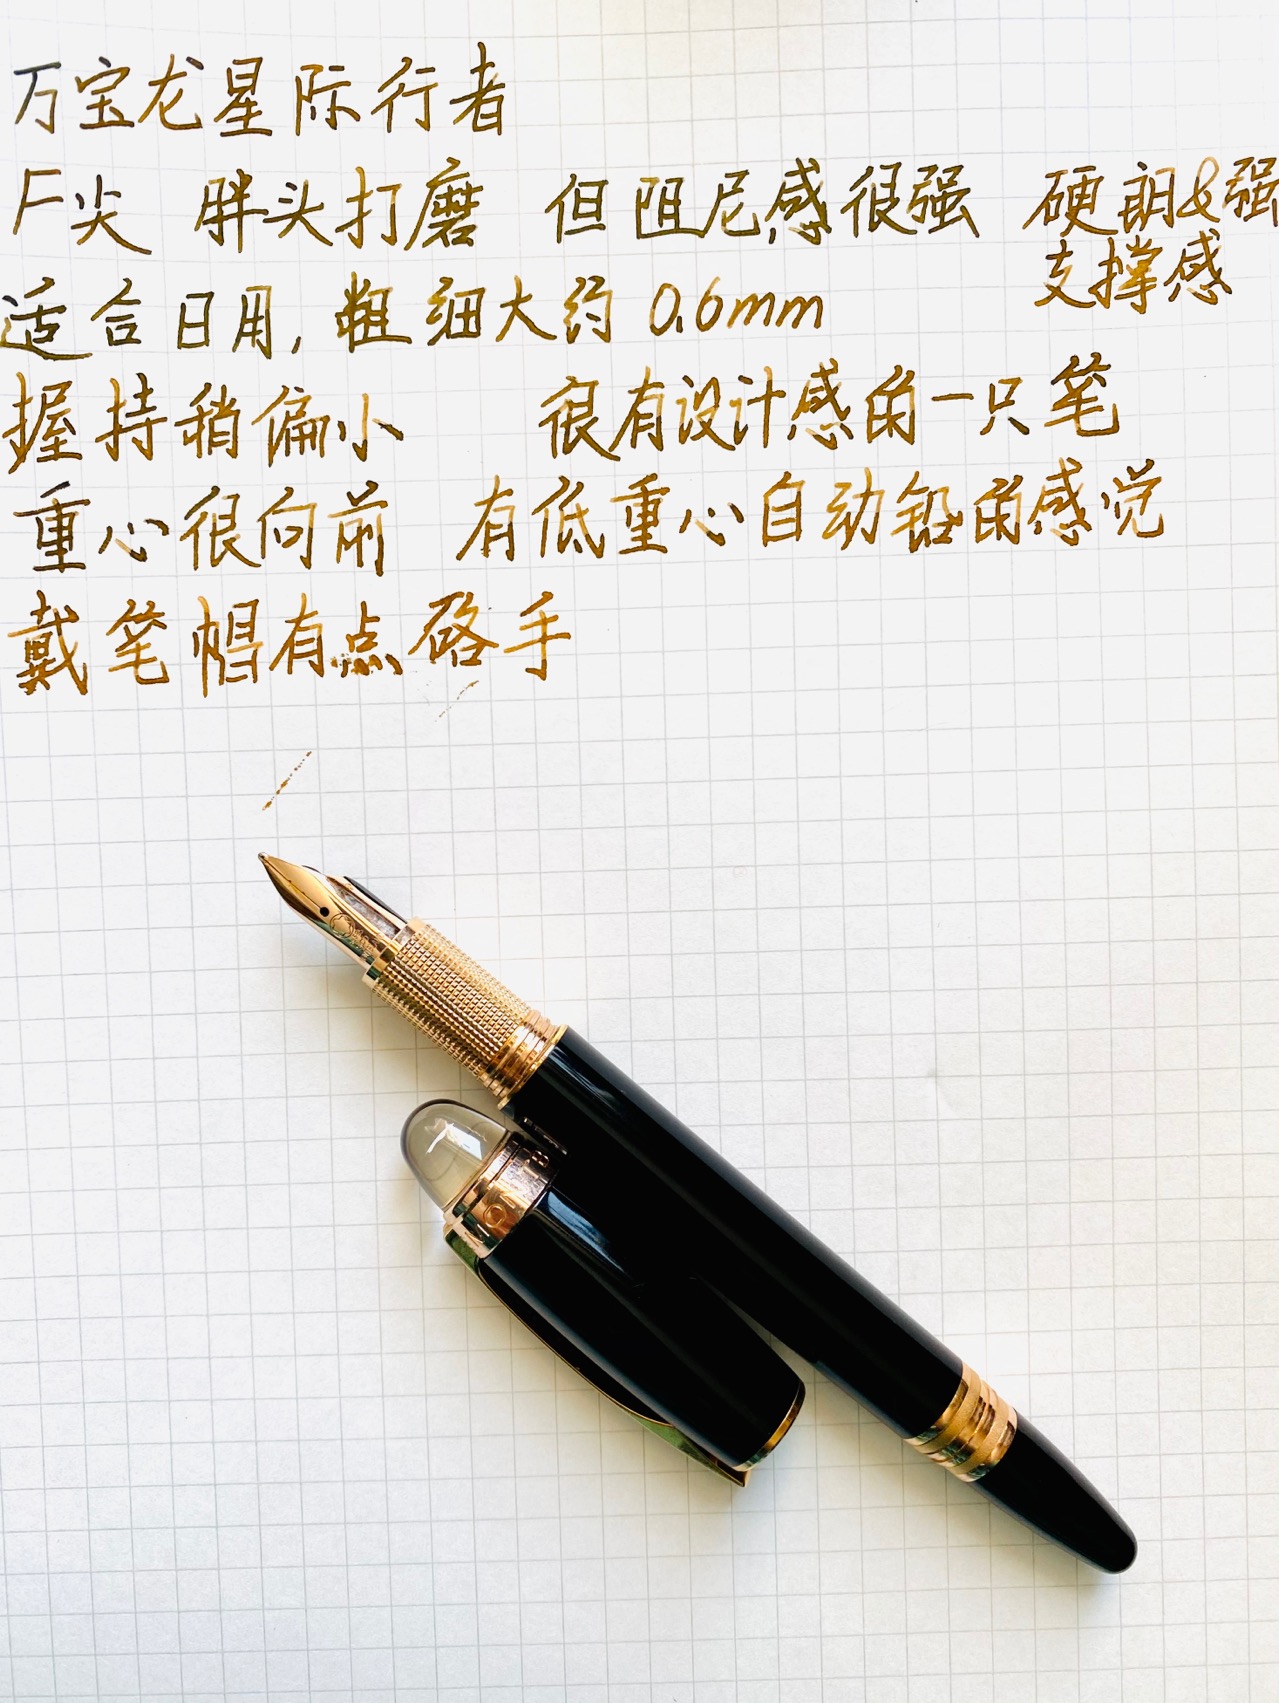 万宝龙星际行者
F尖 胖头打磨 但阻尼感很强 硬朗&强
支撑感
适合日用，粗细大约0.6mm
握持稍偏小 很有设计感的一只笔
重心很向前 有低重心自动铅的感觉
戴笔帽有点硌手